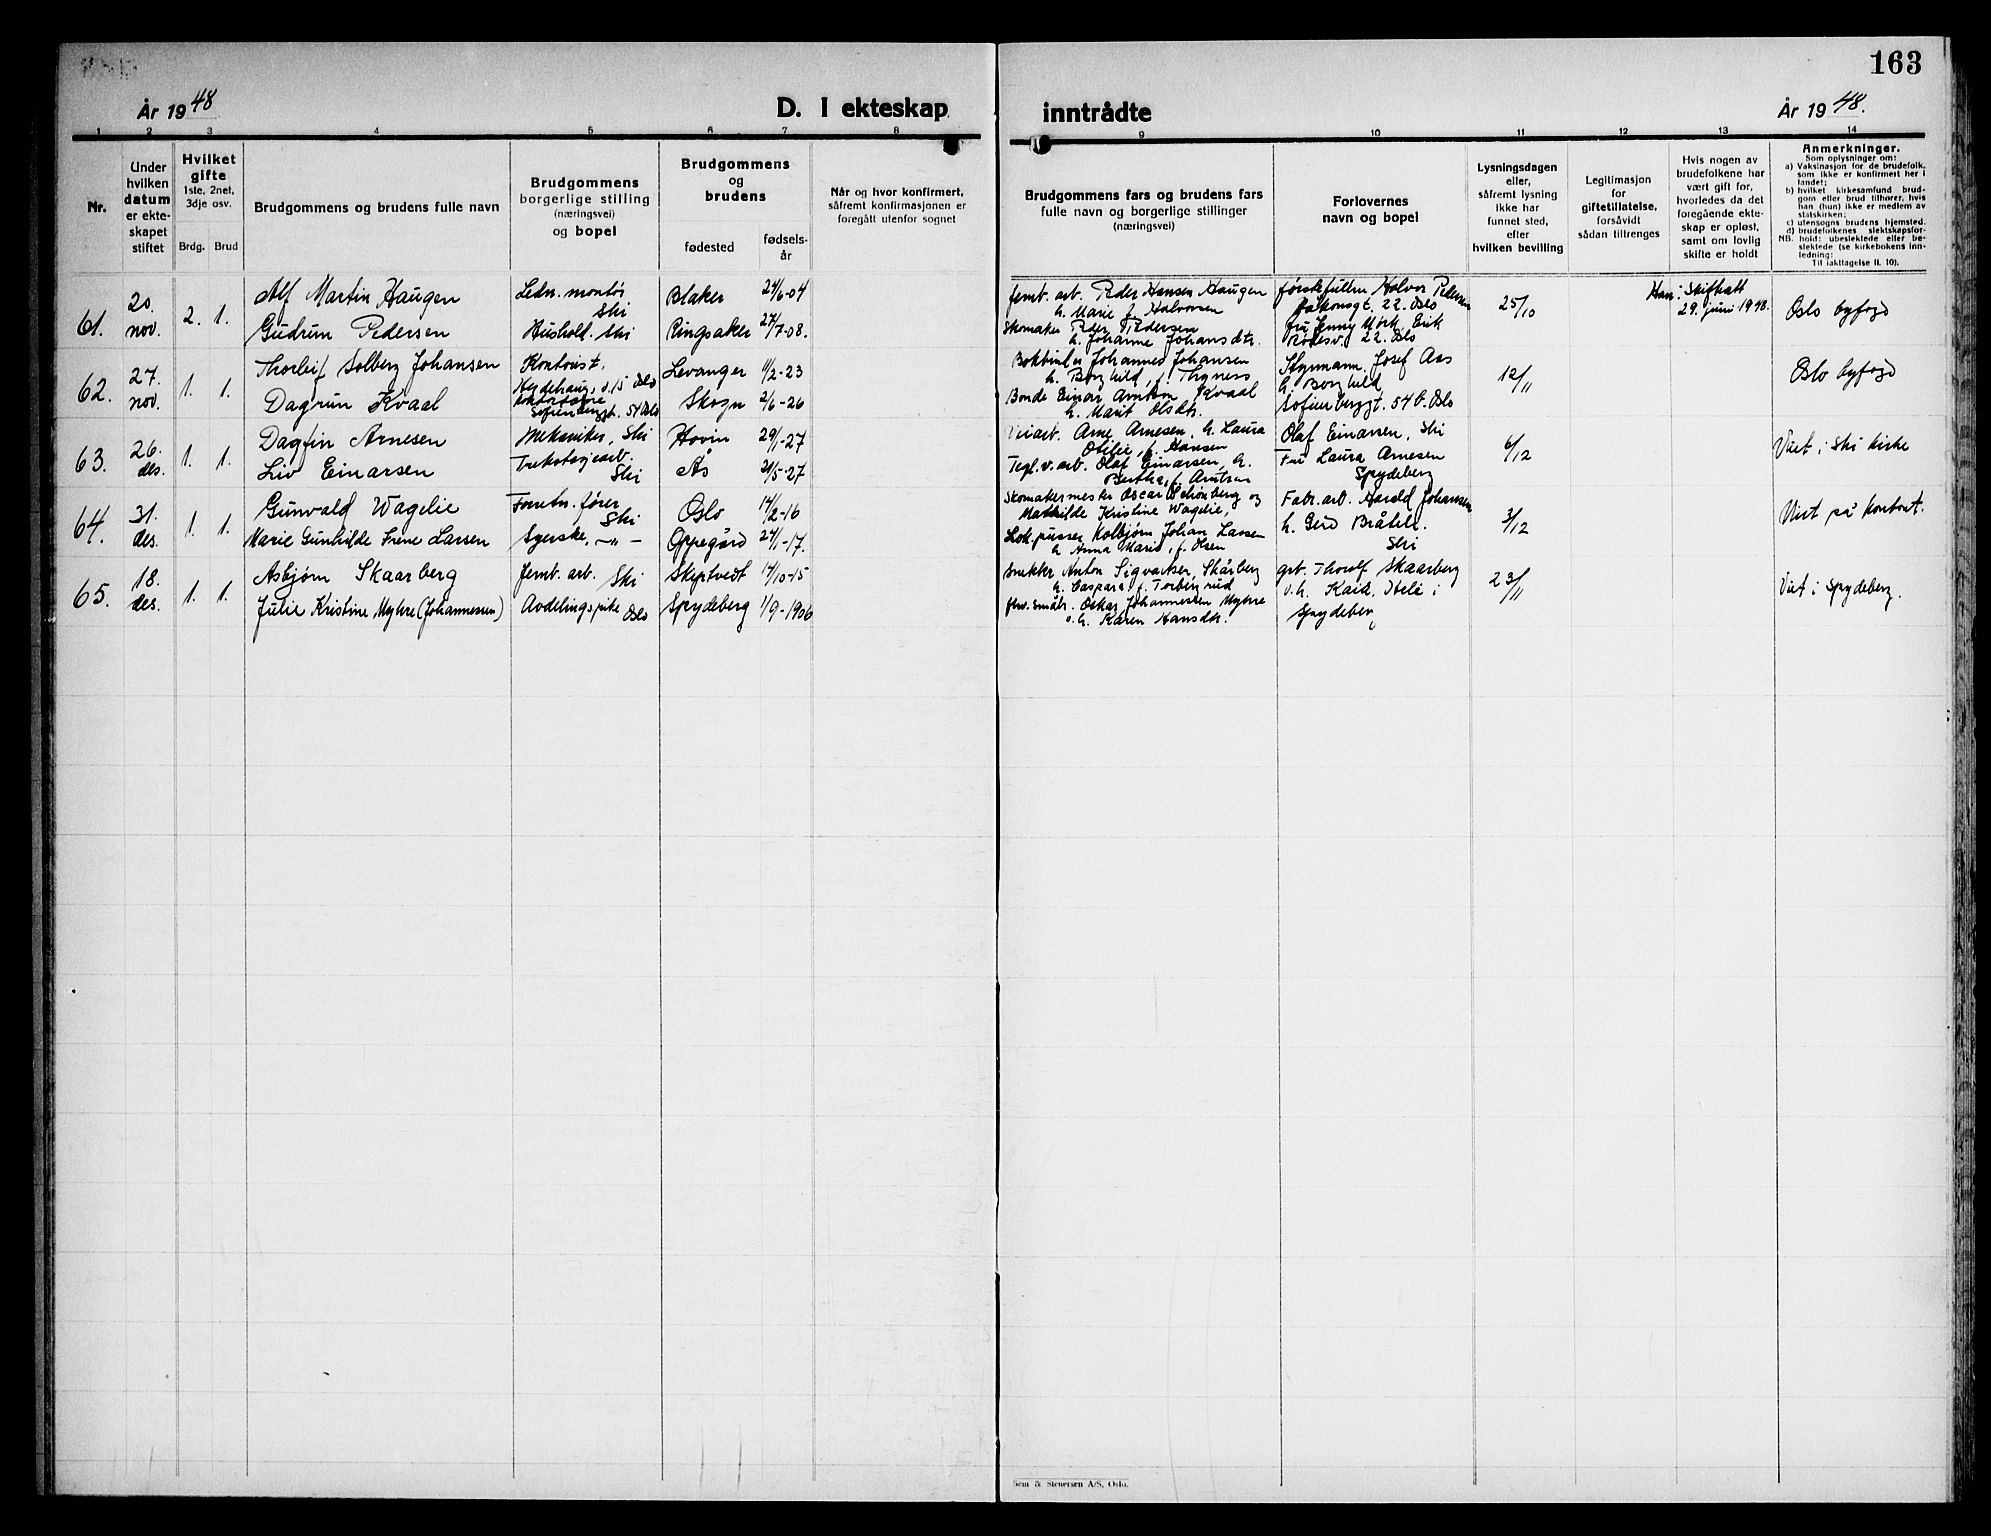 163
År 1948
D. I ekteskap
inntrådte
År 1948.
1 2 3 4 5 6 7 8
9 10 11 12 13 14
Nr.
Under
hvilken
datum
er ekte-
skapet
stiftet
Hvilket
gifte
1ste, 2net,
3dje osv.
Brdg. Brud
Brudgommens og brudens fulle navn
Brudgommens
borgerlige stilling
(næringsvei)
og bopel
Brudgommens
og
brudens
fødested
fødsels-
år
Når og hvor konfirmert,
såfremt konfirmasjonen er
foregått utenfor sognet
Brudgommens fars og brudens fars
fulle navn og borgerlige stillinger
(næringsvei)
Forlovernes
navn og bopel
Lysningsdagen
eller,
såfremt lysning
ikke har
funnet sted,
efter
hvilken bevilling
Legitimasjon
for
giftetillatelse,
forsåvidt
sådan tiltrenges
Hvis nogen av
brudefolkene har
vært gift før,
hvorledes da det
foregående ekte-
skap er opløst,
samt om lovlig
skifte er holdt
Anmerkninger.
Som oplysninger om:
a) Vaksinasjon for de brudefolk,
som ikke er konfirmert her i
landet;
b) hvilket kirkesamfund brud-
gom eller brud tilhører, hvis
han (hun) ikke er medlem av
statskirken;
c) utensogns brudens hjemsted.
d) brudefolkenes slektskapsfor-
NB. hold: ubeslektede eller be-
slektede (se kirkebokens inn-
ledning:
Til iakttagelse II. 10).
61. 20. nov. 2. 1.
Alf Martin Haugen
Gudrun Pedersen
Ledn. montør
Ski
Hushold. Ski
Blaker 24/6-04
Ringsaker 27/7-08.
Jernb. arb. Peder Hansen Haugen
h. Marie f. Halvorsen
Skomaker Peder Pedersen
h. Johanne Johansdtr.
Halvor Pedersen
22. Oslo
fru Jenny Mørk Erik
22. Oslo
25/10
Han: Skifteatt
29. juni 1948.
Oslo byfogd
62. 27. nov. 1. 1.
Thorleif Solberg Johansen
Dagrun Kvaal
Kontorist.
Oslo
54 Oslo
Levanger 11/2-23
Skogn 2/6-26
Bokbinder Johannes Johansen
h. Borghild, f. Thyness
Bonde Einar Arntsen Kvaal
h. Marit Olsdtr.
Styrmann Josef Aas
h. Borghild
Sofienberggt. 54 b. Oslo
12/11
Oslo byfogd
63. 26. des. 1. 1.
Dagfin Arnesen
Liv Einarsen
Mekaniker, Ski
Trikotasjearb.
Ski
Hovin 29/1-27
Ås 21/5-27
Veiarb. Arne Arnesen, h. Laura
Otilie, f. Hansen
Tegl.v. arb. Olaf Einarsen, h.
Berthe, f. Arntsen
Olaf Einarsen, Ski
Fru Laura Arnesen
Spydeberg
6/12
Viet i Ski kirke
64. 31. des. 1. 1.
Gunvald Wagelie
Marie Gunhilde Irene Larsen
fører
Ski
Syerske, -"-
Oslo 14/2-16
Oppegård 24/1-17.
Skomakermester Oscar Schønberg og
Mathilde Kristine Wagelie,
Lok.pusser Kolbjørn Johan Larsen
h. Anna Marie, f. Olsen
Fabr. arb. Harald Johansen
h. Gerd Bråteli.
Ski
3/12
Viet på kontoret.
65. 18. des. 1. 1.
Asbjørn Skaarberg
Julie Kristine Myhre (Johannessen)
Jernb. arb. Ski
Avdelingspike Oslo
Skiptvedt 14/10-15
Spydeberg 1/9-1906
Snekker Anton Sigvartsen Skårberg
h. Caspara f. Torbjørnrud
fhv. småbr. Oskar Johannessen Myhre
o.h. Karen Hansdtr.
grb. Thorolf Skaarberg
o.h. Kaia, i
Spydeberg
23/11
Viet i Spydeberg.
Sem & Stenersen A/S, Oslo.